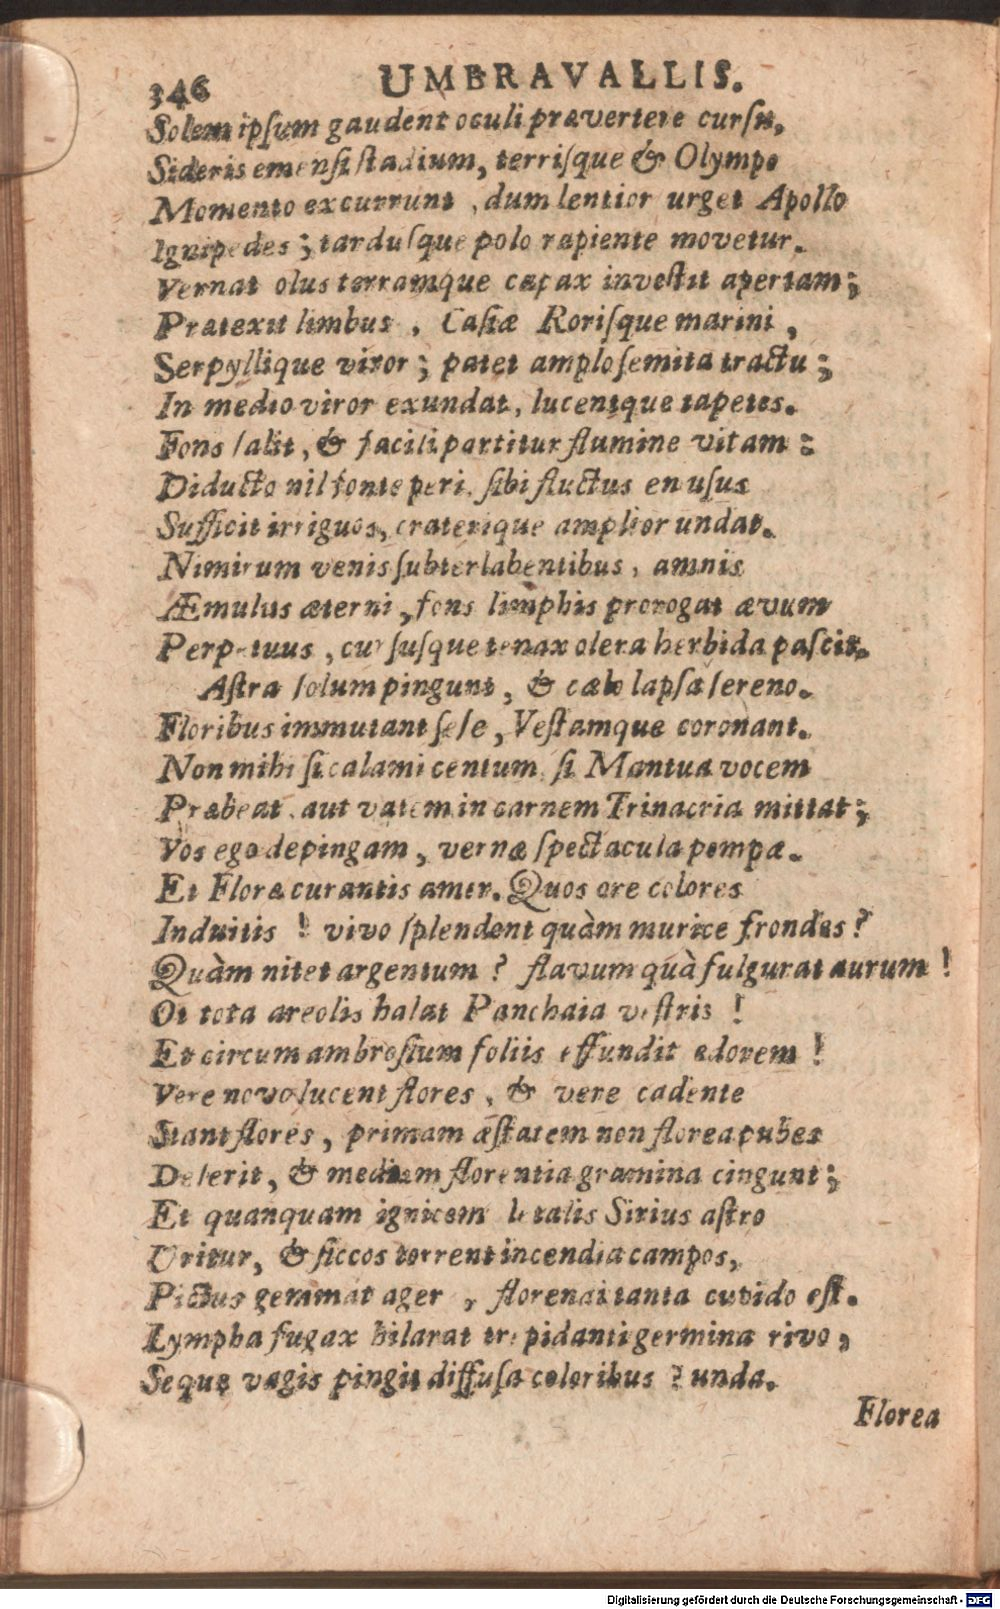 346 UMBRAVALLIS.
Solem ipſum gaudent oculi prævertere curſu,
Sideris emenſi ſtadium, terriſque & Olympo
Momento excurrunt, dum lentior urget Apollo
Ignipedes; tarduſque polo rapiente movetur.
Vernat olus terramque capax inveſtit apertam;
Prætexit limbus, Caſiæ Roriſque marini,
Serpyllique viror; patet amplo ſemita tractu;
In medio viror exundat, lucentque tapetes.
Fons ſalit, & facili partitur flumine vitam:
Diducto nil fonte perit, ſibi fluctus en uſus
Sufficit irriguos, craterique amplior undat.
Nimirum venis ſubterlabentibus, amnis
Æmulus æterni, fons limphis prorogat ævum
Perpetuus, curſuſque tenax olera herbida paſcit.
Aſtra ſolum pingunt, & cælo lapſa ſereno.
Floribus immutant ſeſe, Veſtamque coronant.
Non mihi ſi calami centum, ſi Mantua vocem
Præbeat, aut vatem in carnem Trinacria mittat;
Vos ego depingam, vernæ ſpectacula pompæ.
Et Floræ curantis amor. Quos ore colores
Induitis! vivo ſplendent quàm murice frondes?
Quàm nitet argentum? flavum quà fulgurat aurum!
Ot tota areolis halat Panchaia veſtris!
Et circum ambroſium foliis effundit odorem!
Vere novo lucent flores, & vere cadente
Stant flores, primam æſtatem non florea pubes
Deſerit, & mediam florentia gramina cingunt;
Et quanquam ignicom letalis Sirius aſtro
Uritur, & ſiccos torrent incendia campos,
Pictus gemmat ager, florendi tanta cupido eſt.
Lympha fugax hilarat trepidanti germina rivo,
Seque vagis pingit diffuſa coloribus? unda.
Florea
Digitalisierung gefördert durch die Deutsche Forschungsgemeinschaft - DFG